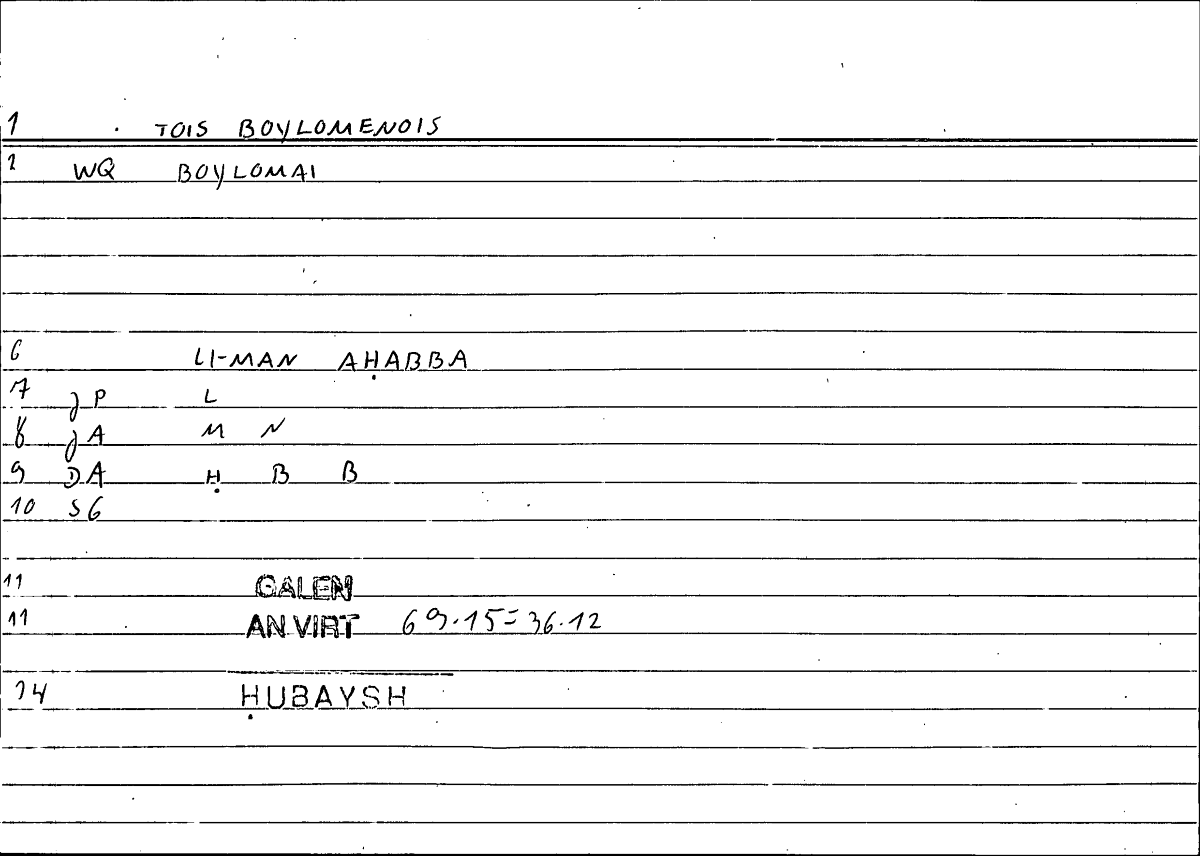 1 TOIS BOYLOMENOIS
2 WQ BOYLOMAI
6 LI-MAN AḤABBA
7 JP L
8 JA M N
9 DA Ḥ B B
10 SG
11 GALEN
11 AN VIRT 69.15=36.12
14 ḤUBAYSH